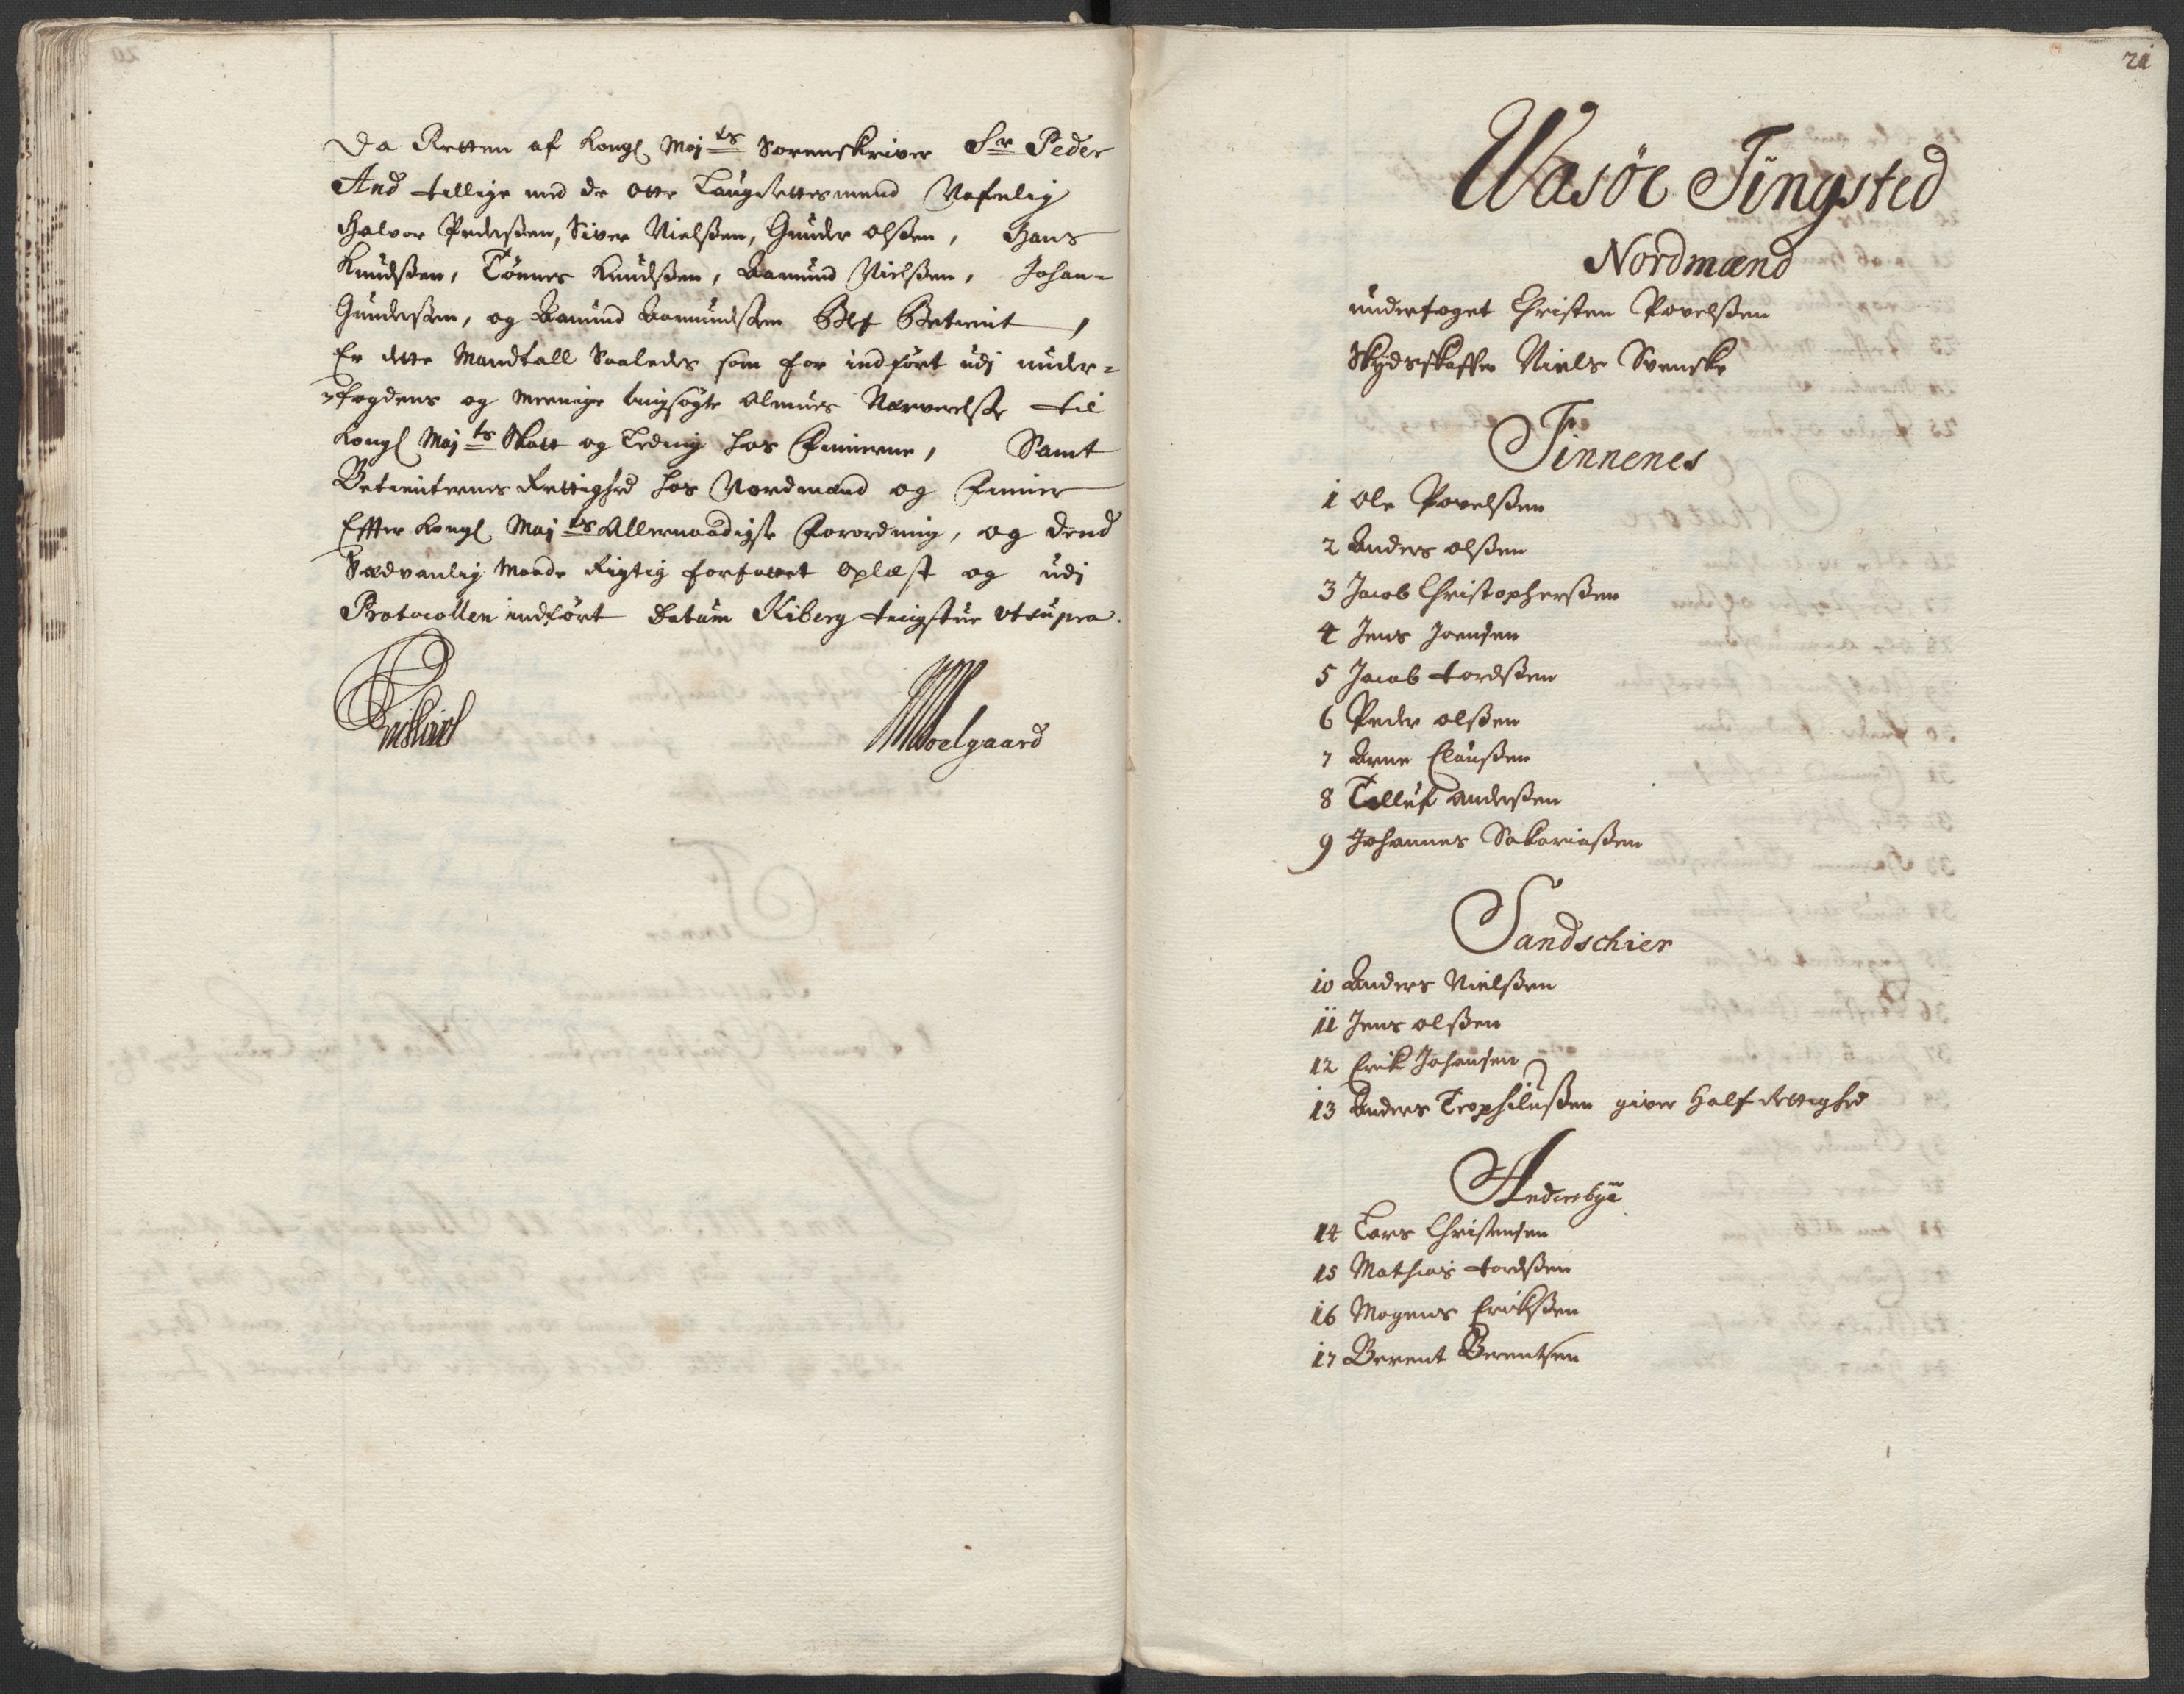 Da Retten af Kongl Maj ts Sorenskriver Sr Peder
And tillige med de otte Laugrettesmend Nafnlig
Halvor Pederßen, Siver Nielßen, Gunder olßen, Hans
Knudßen, Tönnes Knudßen, Aamund Nielßen, Johan-
Gunderßen, og Aamund Aamundßen Blef Betient,
Er dette Mandtall Saaledes som for indfört udj under=
=fogdens og meenige tingsögte Almues Nærverelße til
Kongl Maj ts Skatt og Leding hos Finnerne, Samt
Betienternes Rettighed hos Nordmænd og Finner
Effter Kongl Maj ts Allernaadigste Forordning, og dend
Sædvanlig Maade Rigtig forfattet oplæst og udj
Protocollen indfört Datum Kiberg tingstue Ut supra.
Moelgaard
21
Wasöe Tingsted
Nordmænd
underfoget Christen Povelßen
Skydsskaffer Niels Svenske
Finnenes
1 Ole Povelßen
2 Anders olßen
3 Jacob Christopherßen
4 Jens Joensen
5 Jacob tordßen
6 Peder olßen
7 Arne Claußen
8 Tolluf anderßen
9 Johannes Sakariaßen
Sandschier
10 Anders Nielßen
11 Jens olßen
12 Erik Johansen
13 Anders Teophilußen giver half Rettighed
Andersbye
14 Lars Christensen
15 Mathias tordßen
16 Mogens Erikßen
17 Berent Berentsen